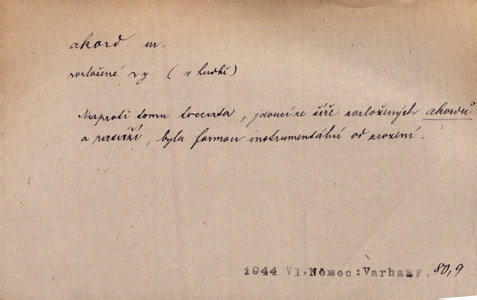 akord m.
rozložené ~y (v hudbě)
Naproti tomu toccata, jdoucí ze šíře rozložených akordů
a pasáží, byla formou instrumentální od zrození.
1944 Vl. Němec: Varhany. 80,9